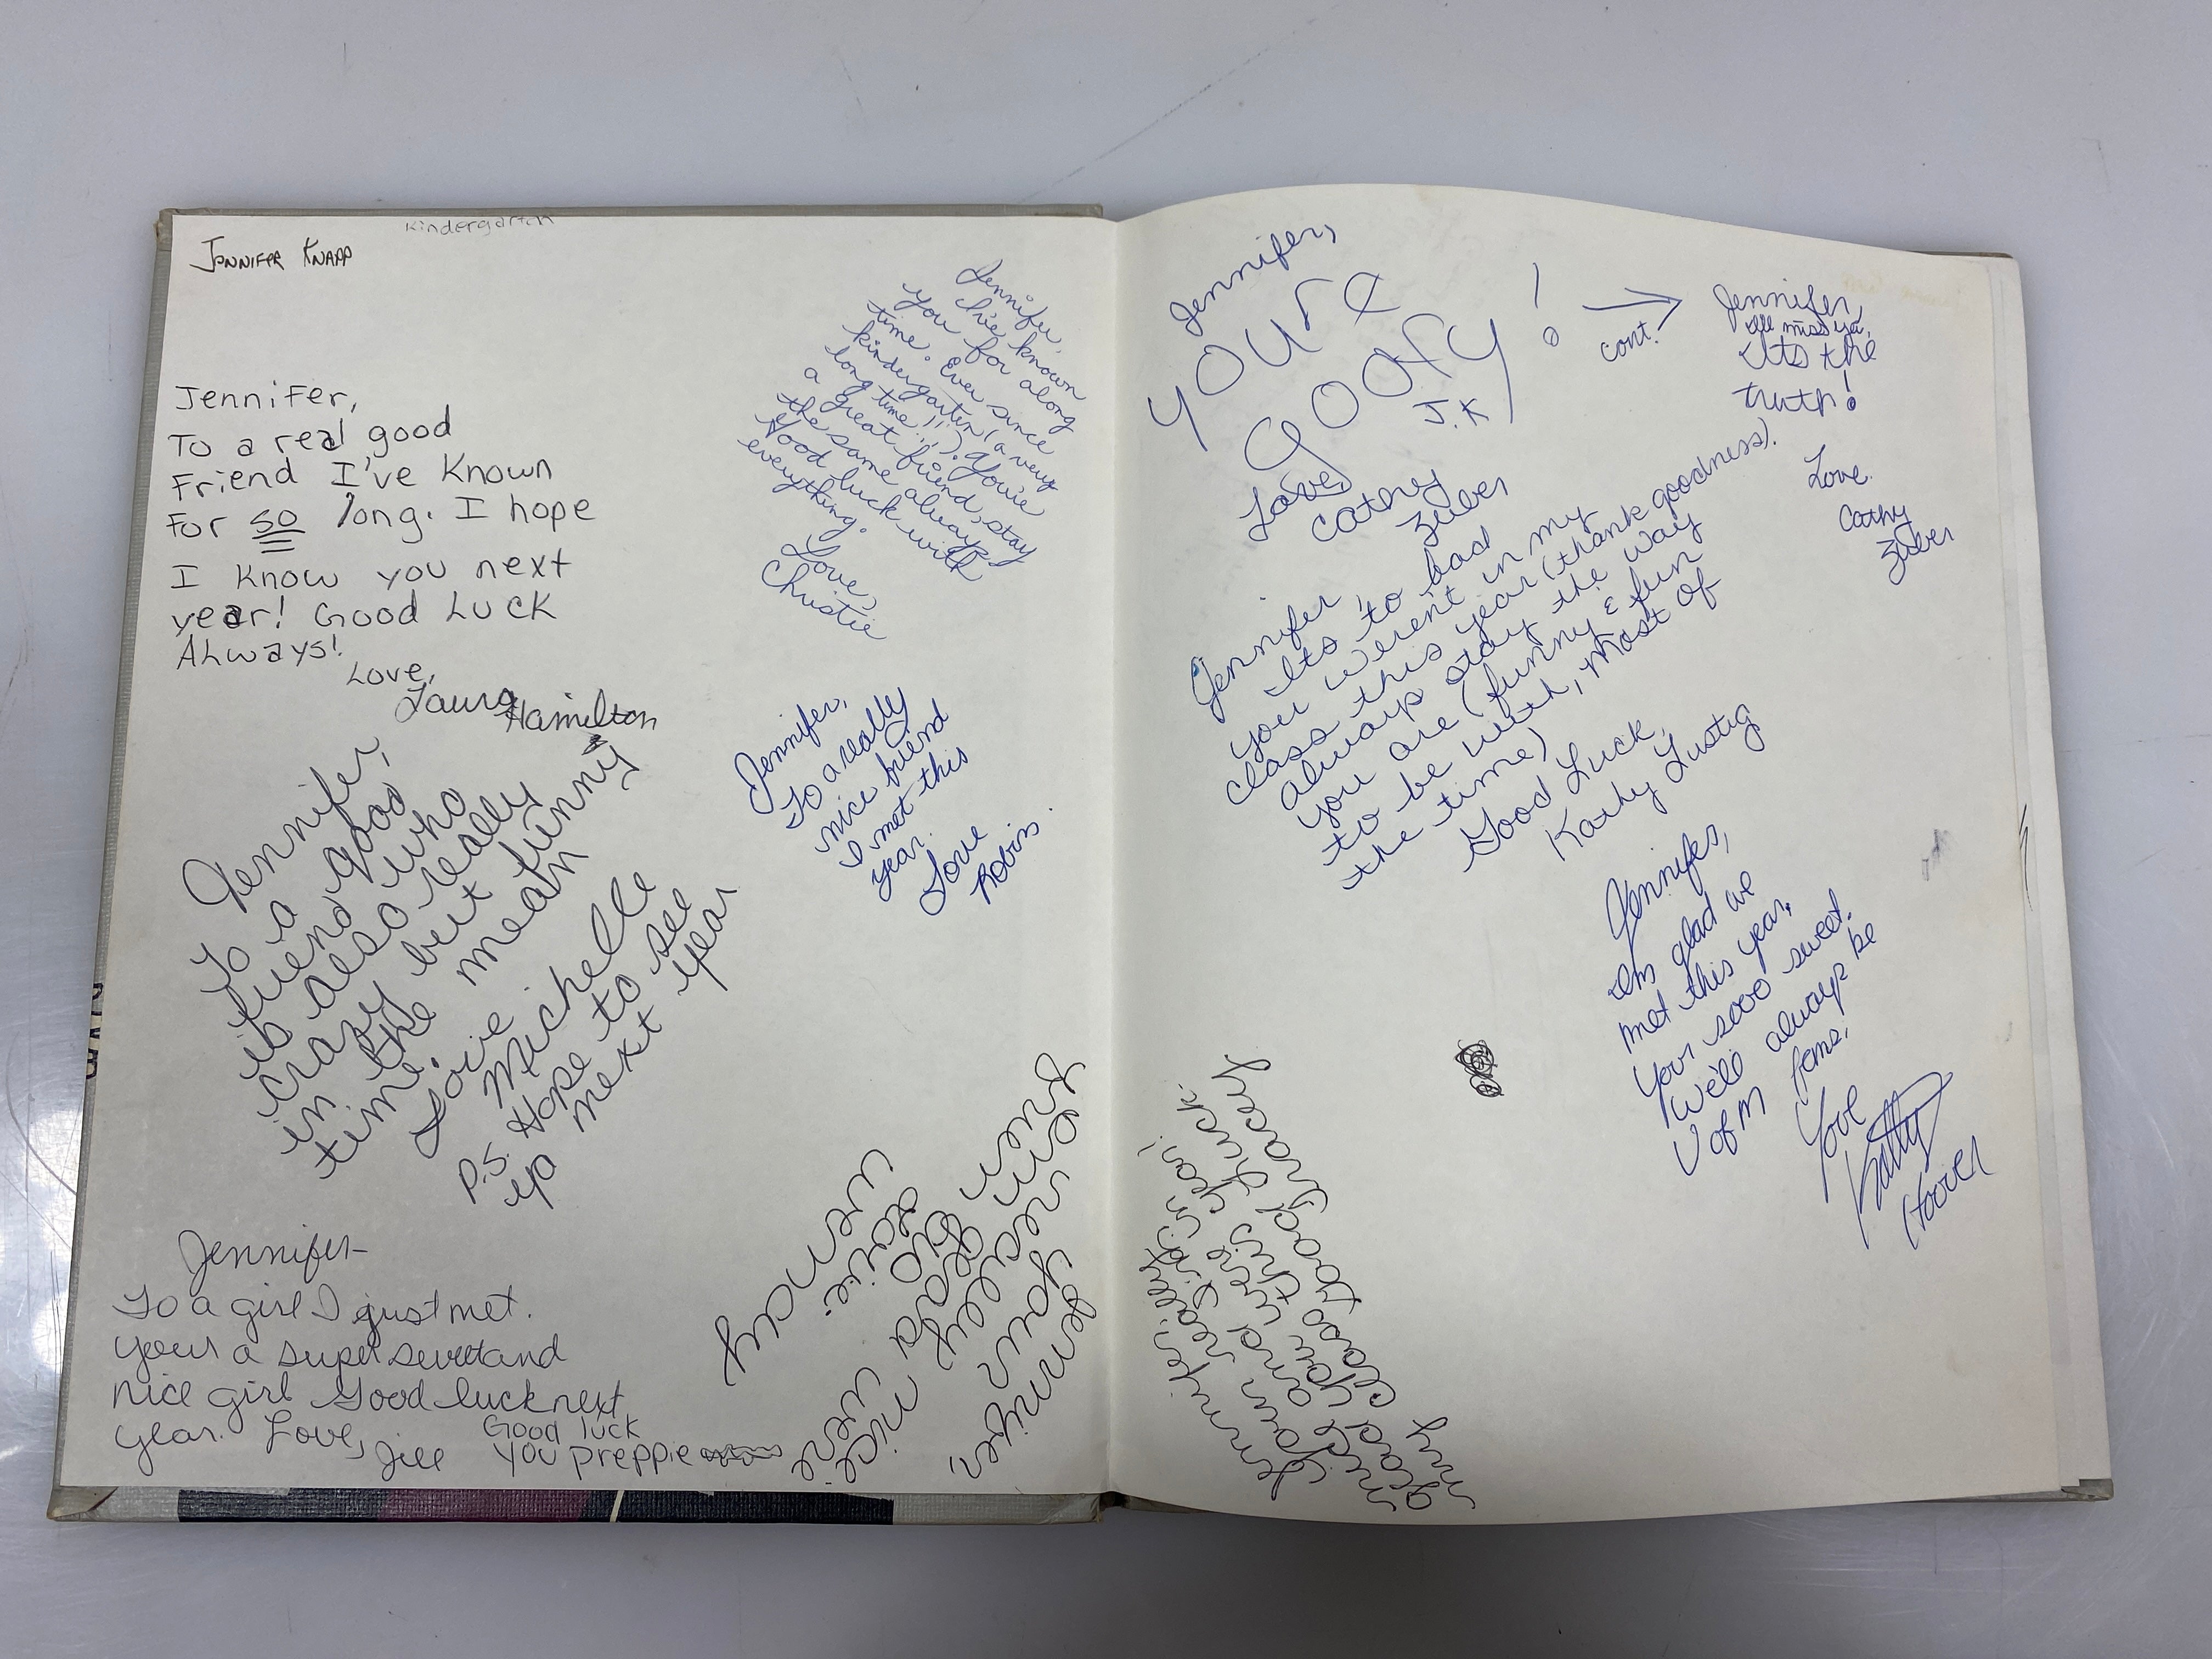 Kindergarten
JENNIFER KNAPP
Jennifer,
To a real good
Friend I've Known
For so long. I hope
I Know you next
year! Good Luck
Always!
Love,
Laura Hamilton
Jennifer,
I've known
you for along
time. Ever since
kindergarten (a very
long time!!). You're
a great friend, stay
the same always
Good luck with
everything.
Love,
Christie
Jennifer,
To a good
friend who
is also really
crazy but funny
in the mean
time.
Love
Michelle
P.S. Hope to see
ya next year
Jennifer,
To a really
nice friend
I met this
year.
Love
Robin.
Jennifer-
To a girl I just met.
your a super sweet and
nice girl Good luck next
year. Love,
Jill
Good luck
you preppie
Jennifer,
your
really
nice
Love
Wendy
Jennifer,
youre
goofy!
J.K
Love,
Cathy
Zuber
cont.
Jennifer,
Ill miss ya,
Its the
truth!
Love
Cathy
Zuber
Jennifer,
Its to bad
you weren't in my
class this year (thank goodness).
Always stay the way
you are (funny & fun
to be with, most of
the time)
Good Luck,
Kathy Lustig
Jennifer,
Im glad we
met this year,
Your sooo sweet.
We'll always be
U of M fems,
Love
Kathy
Hoover
Jennifer,
Your really
nice and
glad you were in
my class this year!
Good Luck
Tracey